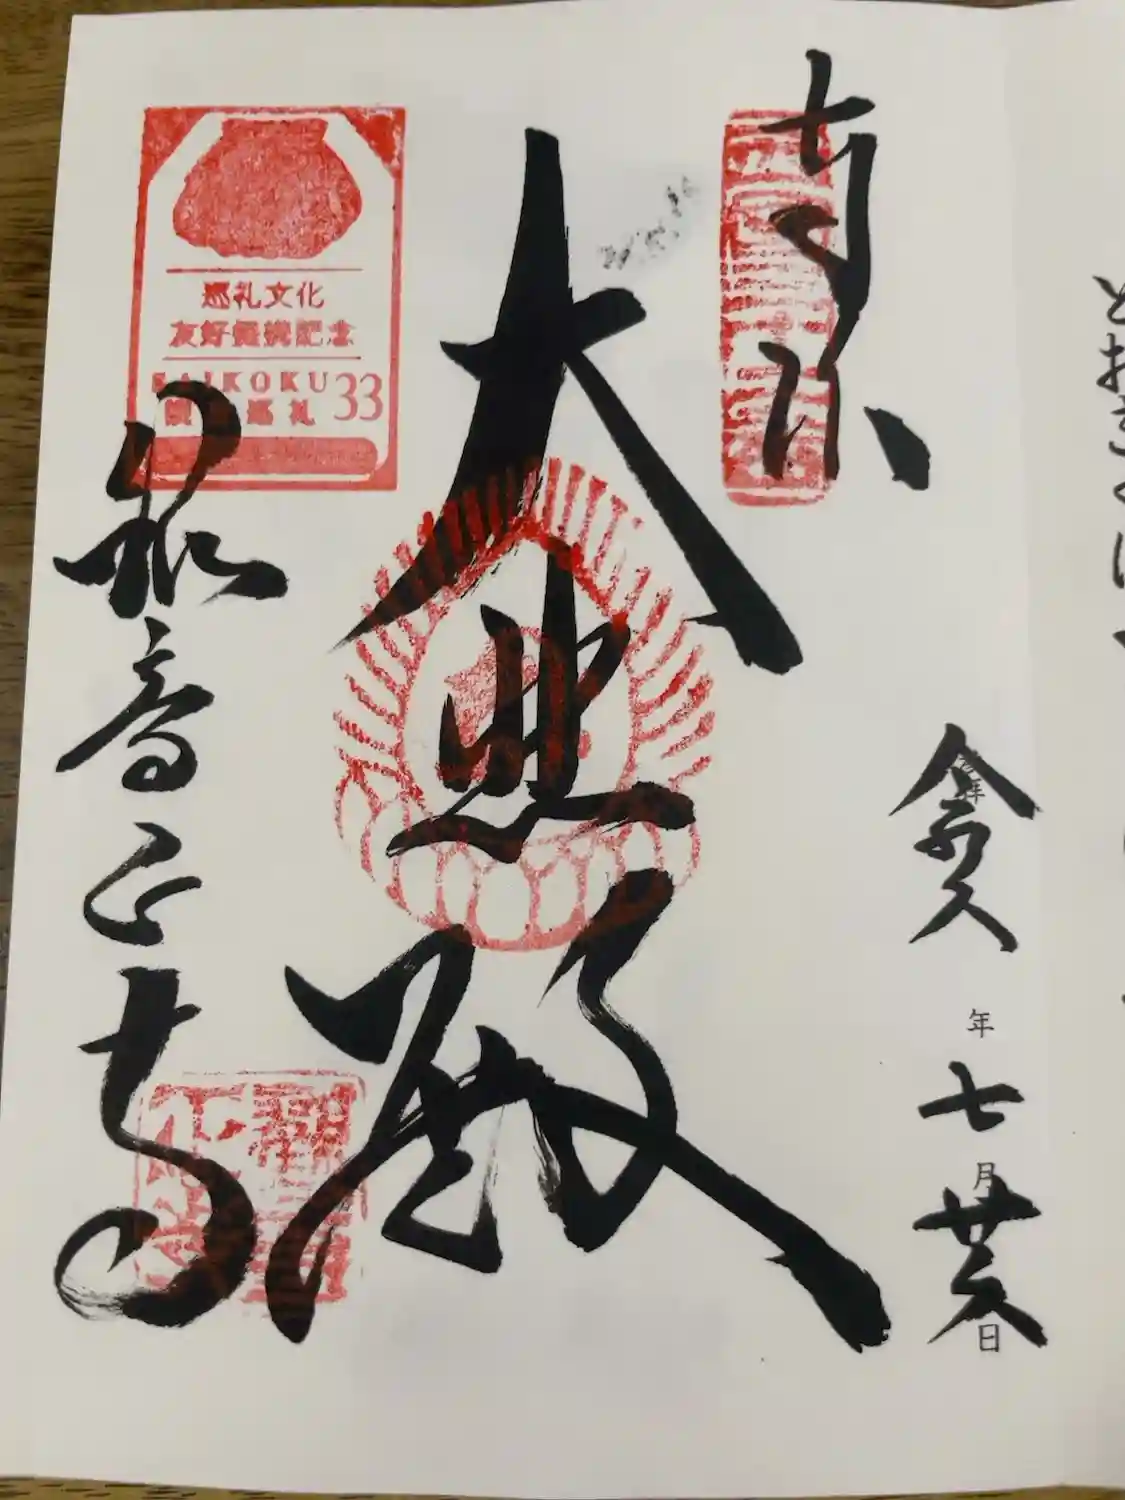 とおきくに
奉拝
令和六年七月廿六日
大悲殿
巡礼文化
友好提携記念
SAIKOKU 33
巡礼
観音正寺